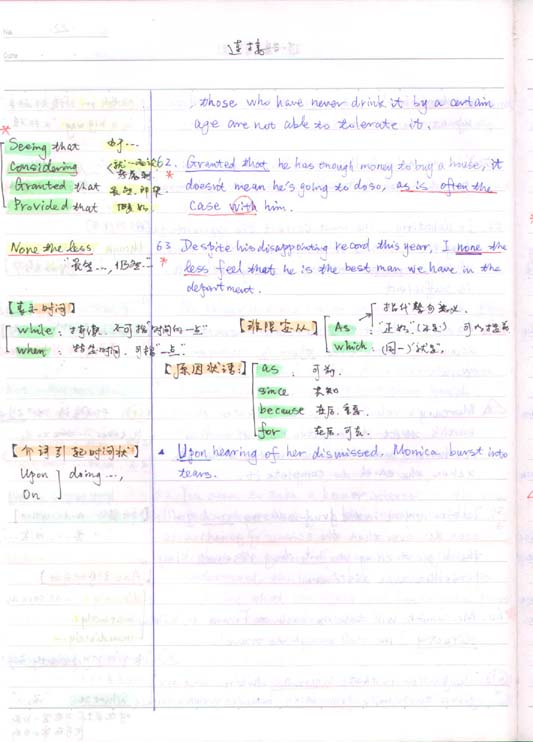 No.
Date
连接
those who have never drink it by a certain
age are not able to tolerate it.
Seeing that 由于…
Considering 就…而论
Granted that 虽然,即使
Provided that 假如.
62. Granted that he has enough money to buy a house, it
doesn't mean he's going to do so, as is often the
case with him.
None the less
"虽然…,但仍然…"
63 Despite his disappointing record this year, I none the
less feel that he is the best man we have in the
department.
【表示时间】
while: 持续.不可指"时间的一点"
when: 特定时间.可指"一点".
【非限定从】
指代整句意义.
As: "正如"
which:
【原因状语】
as: 可前.
since 已知
because 在后.
for 在后.
【介词引起时间状】
Upon
On
doing…,
Upon hearing of her dismissed, Monica burst into
tears.